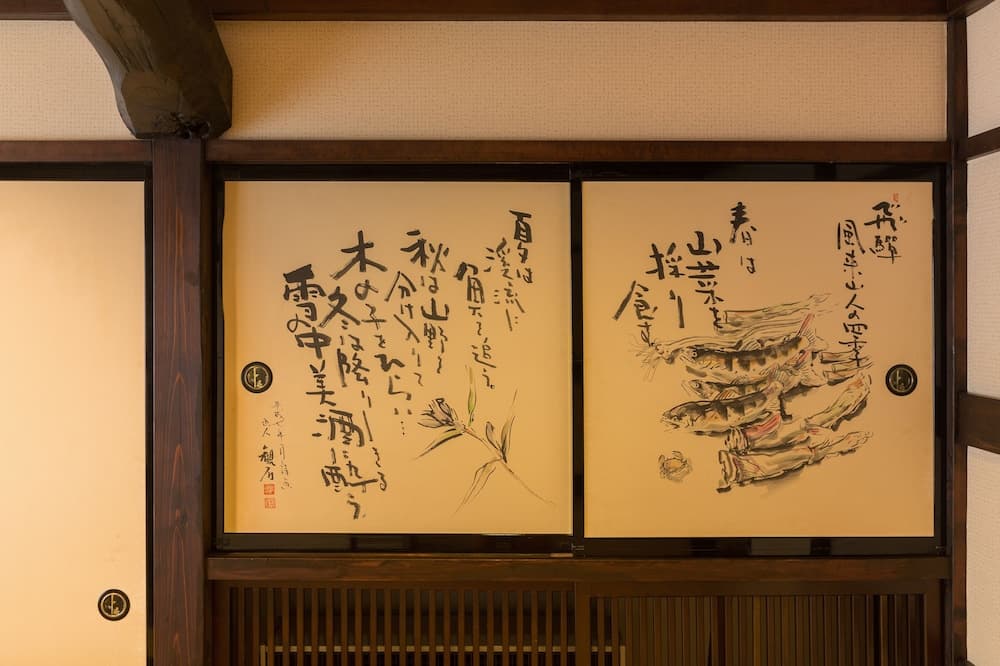 飛驒
風来山人の四季
春は
山菜を
採り
食す。
夏は
渓流に
魚を追う。
秋は山野を
分け入りて
木の子をひらい…
冬は降りしきる
雪の中美酒に酔う。